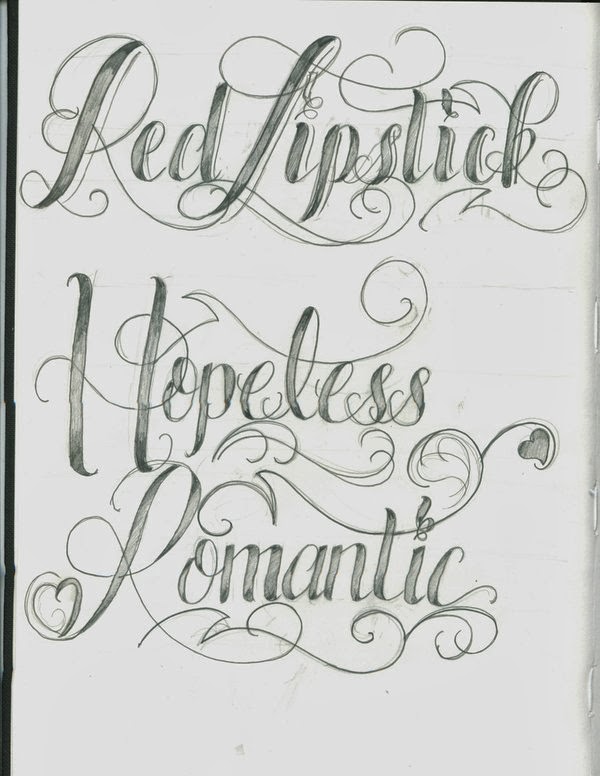 Red Lipstick
Hopeless
Romantic